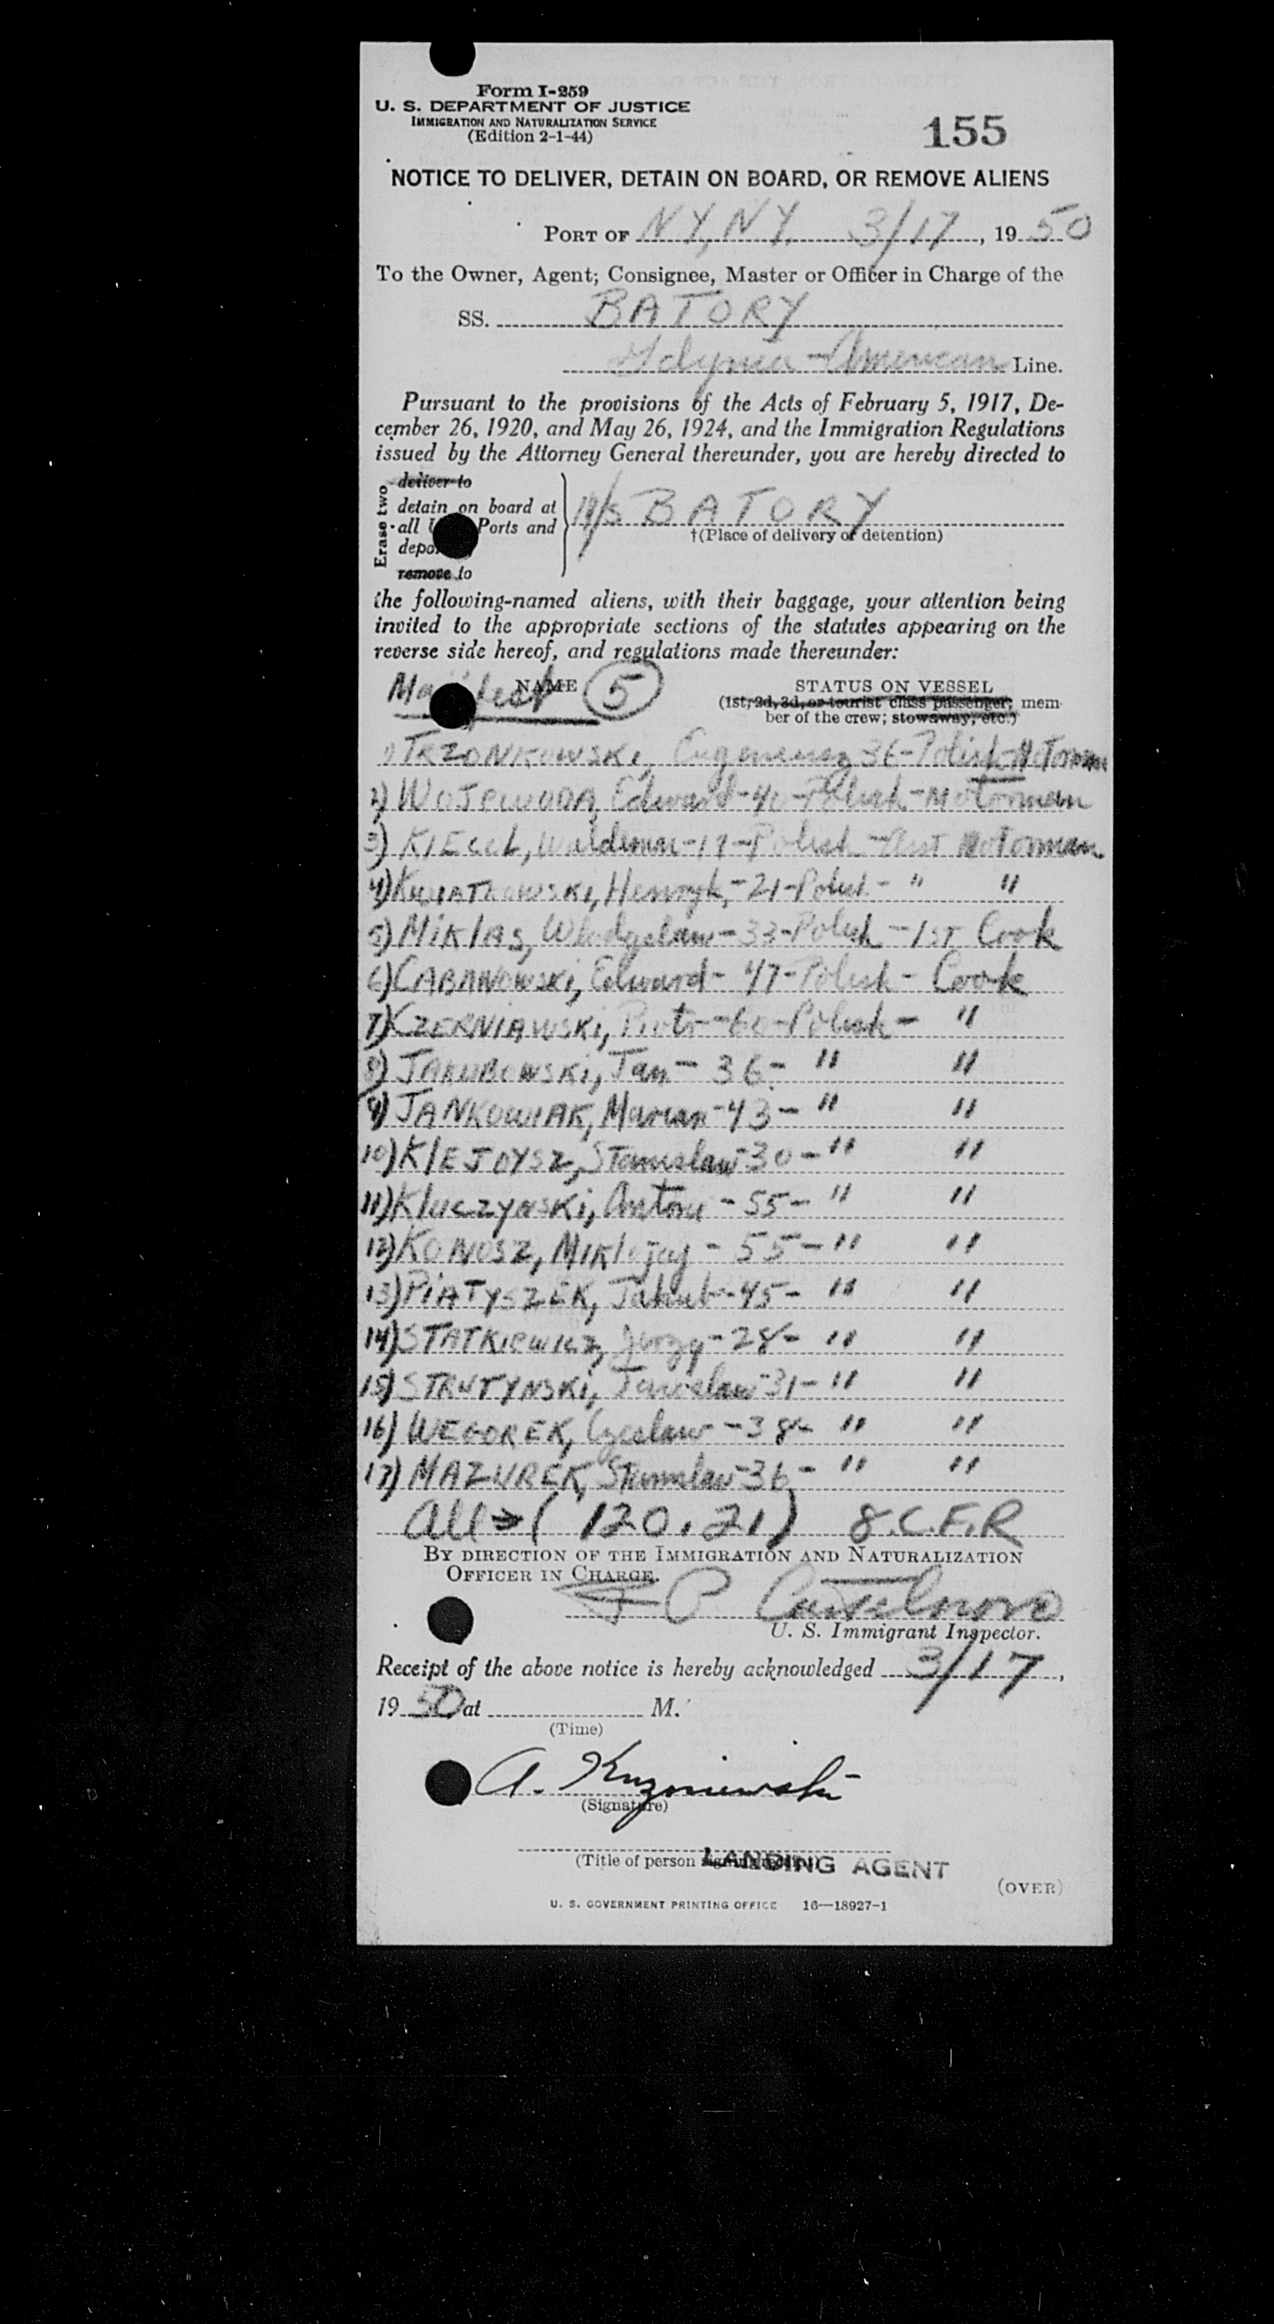 Form I-259
U. S. DEPARTMENT OF JUSTICE
IMMIGRATION AND NATURALIZATION SERVICE
(Edition 2-1-44)
155
NOTICE TO DELIVER, DETAIN ON BOARD, OR REMOVE ALIENS
PORT OF NY, NY. 3/17, 19 50
To the Owner, Agent; Consignee, Master or Officer in Charge of the
SS. BATORY
Gdynia-American Line.
Pursuant to the provisions of the Acts of February 5, 1917, De-
cember 26, 1920, and May 26, 1924, and the Immigration Regulations
issued by the Attorney General thereunder, you are hereby directed to
Erase two
deliver to
detain on board at
all Ports and
remove to
M/S BATORY
†(Place of delivery or detention)
the following-named aliens, with their baggage, your attention being
invited to the appropriate sections of the statutes appearing on the
reverse side hereof, and regulations made thereunder:
NAME 5 STATUS ON VESSEL
(1st, 2d, 3d, or tourist class passenger; mem-
ber of the crew; stowaway, etc.)
1) TRZONKOWSKI, Eugeniusz 36-Polish-Motorman
2) WOJEWODA, Edward-40-Polish-Motorman
3) Waldemar-19-Polish-Asst Motorman
4) KWIATKOWSKI, Henryk,-21-Polish- " "
5) MIKLAS, -33-Polish-1ST Cook
6) CABANOWSKI, Edward-47-Polish-Cook
7) CZERNIAWSKI, Piotr-60-Polish- "
8) JAKUBOWSKI, Jan-36- " "
9) JANKOWIAK, Marian-43- " "
10) KIEJDYSZ, Stanislaw-30- " "
11) KLUCZYNSKI, Antoni-55- " "
12) KONOSZ, Miklojaj-55- " "
13) PIATYSZEK, Jakub-45- " "
14) STATKIEWICZ, Jerzy-28- " "
15) STRUTYNSKI, Jaroslaw-31- " "
16) WEGOREK, Czeslaw-38- " "
17) MAZUREK, Stanislaw-36- " "
All → (120.21) 8.C.F.R
BY DIRECTION OF THE IMMIGRATION AND NATURALIZATION
OFFICER IN CHARGE.
U. S. Immigrant Inspector.
Receipt of the above notice is hereby acknowledged 3/17,
19 50 at M.
(Time)
A. Kuzniewski
(Signature)
(Title of person LANDING AGENT
(OVER)
U. S. GOVERNMENT PRINTING OFFICE 16—18927-1